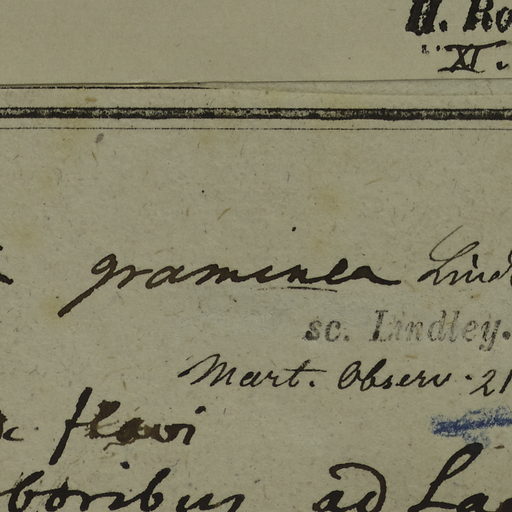 H. Ro
XI.
graminea Lind
sc. Lindley.
Mart. Observ. 21
flavi
boribus ad La